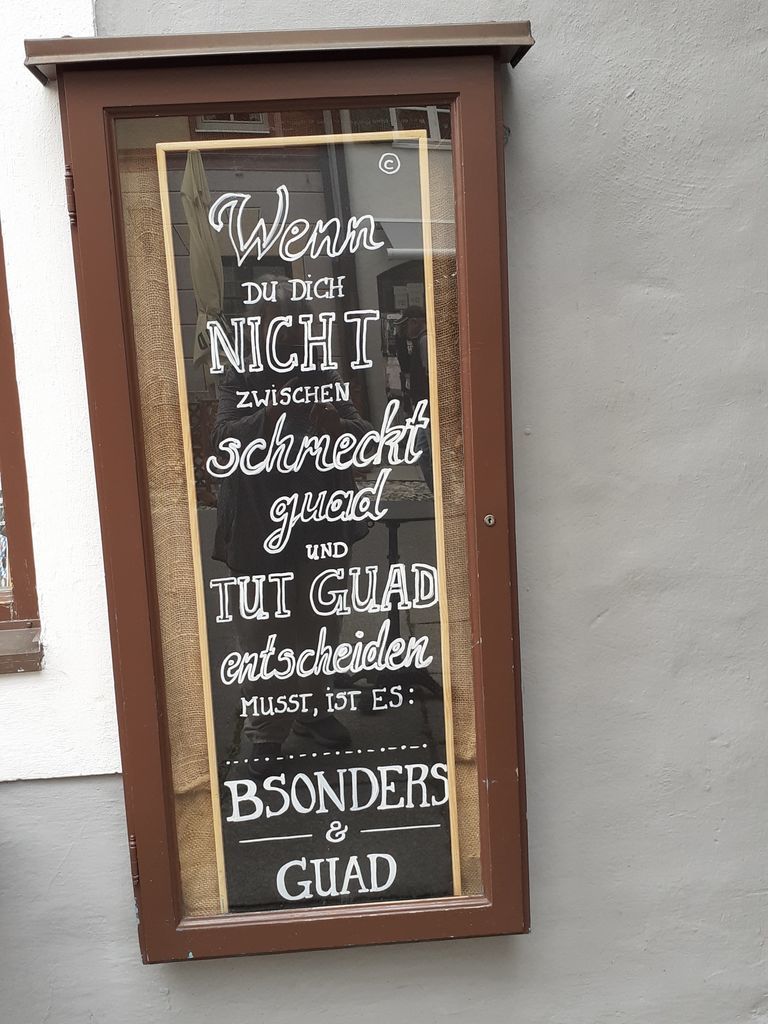 ©
Wenn
DU DICH
NICHT
ZWISCHEN
schmeckt
guad
UND
TUT GUAD
entscheiden
MUSST, IST ES:
BSONDERS
&
GUAD